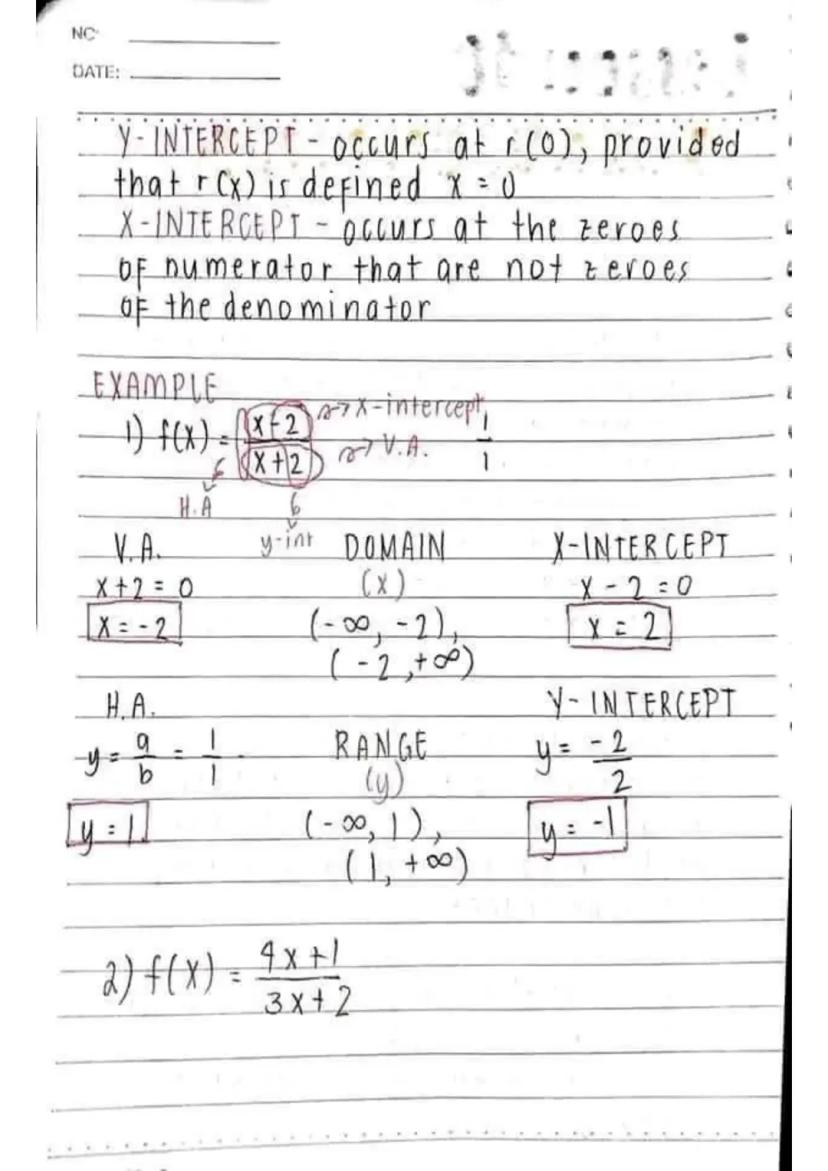 NO:
DATE:
Y-INTERCEPT - occurs at r(0), provided
that r(x) is defined x = 0
X-INTERCEPT - occurs at the zeroes
of numerator that are not zeroes
of the denominator
EXAMPLE
1) f(x) = x-2 / x+2
x-intercept
V.A.
1/1
H.A
y-int
V.A.
x+2 = 0
x = -2
DOMAIN
(x)
(-∞, -2),
(-2, +∞)
X-INTERCEPT
x - 2 = 0
x = 2
H.A.
y = a/b = 1/1
y = 1
RANGE
(y)
(-∞, 1),
(1, +∞)
Y-INTERCEPT
y = -2/2
y = -1
2) f(x) = 4x+1 / 3x+2